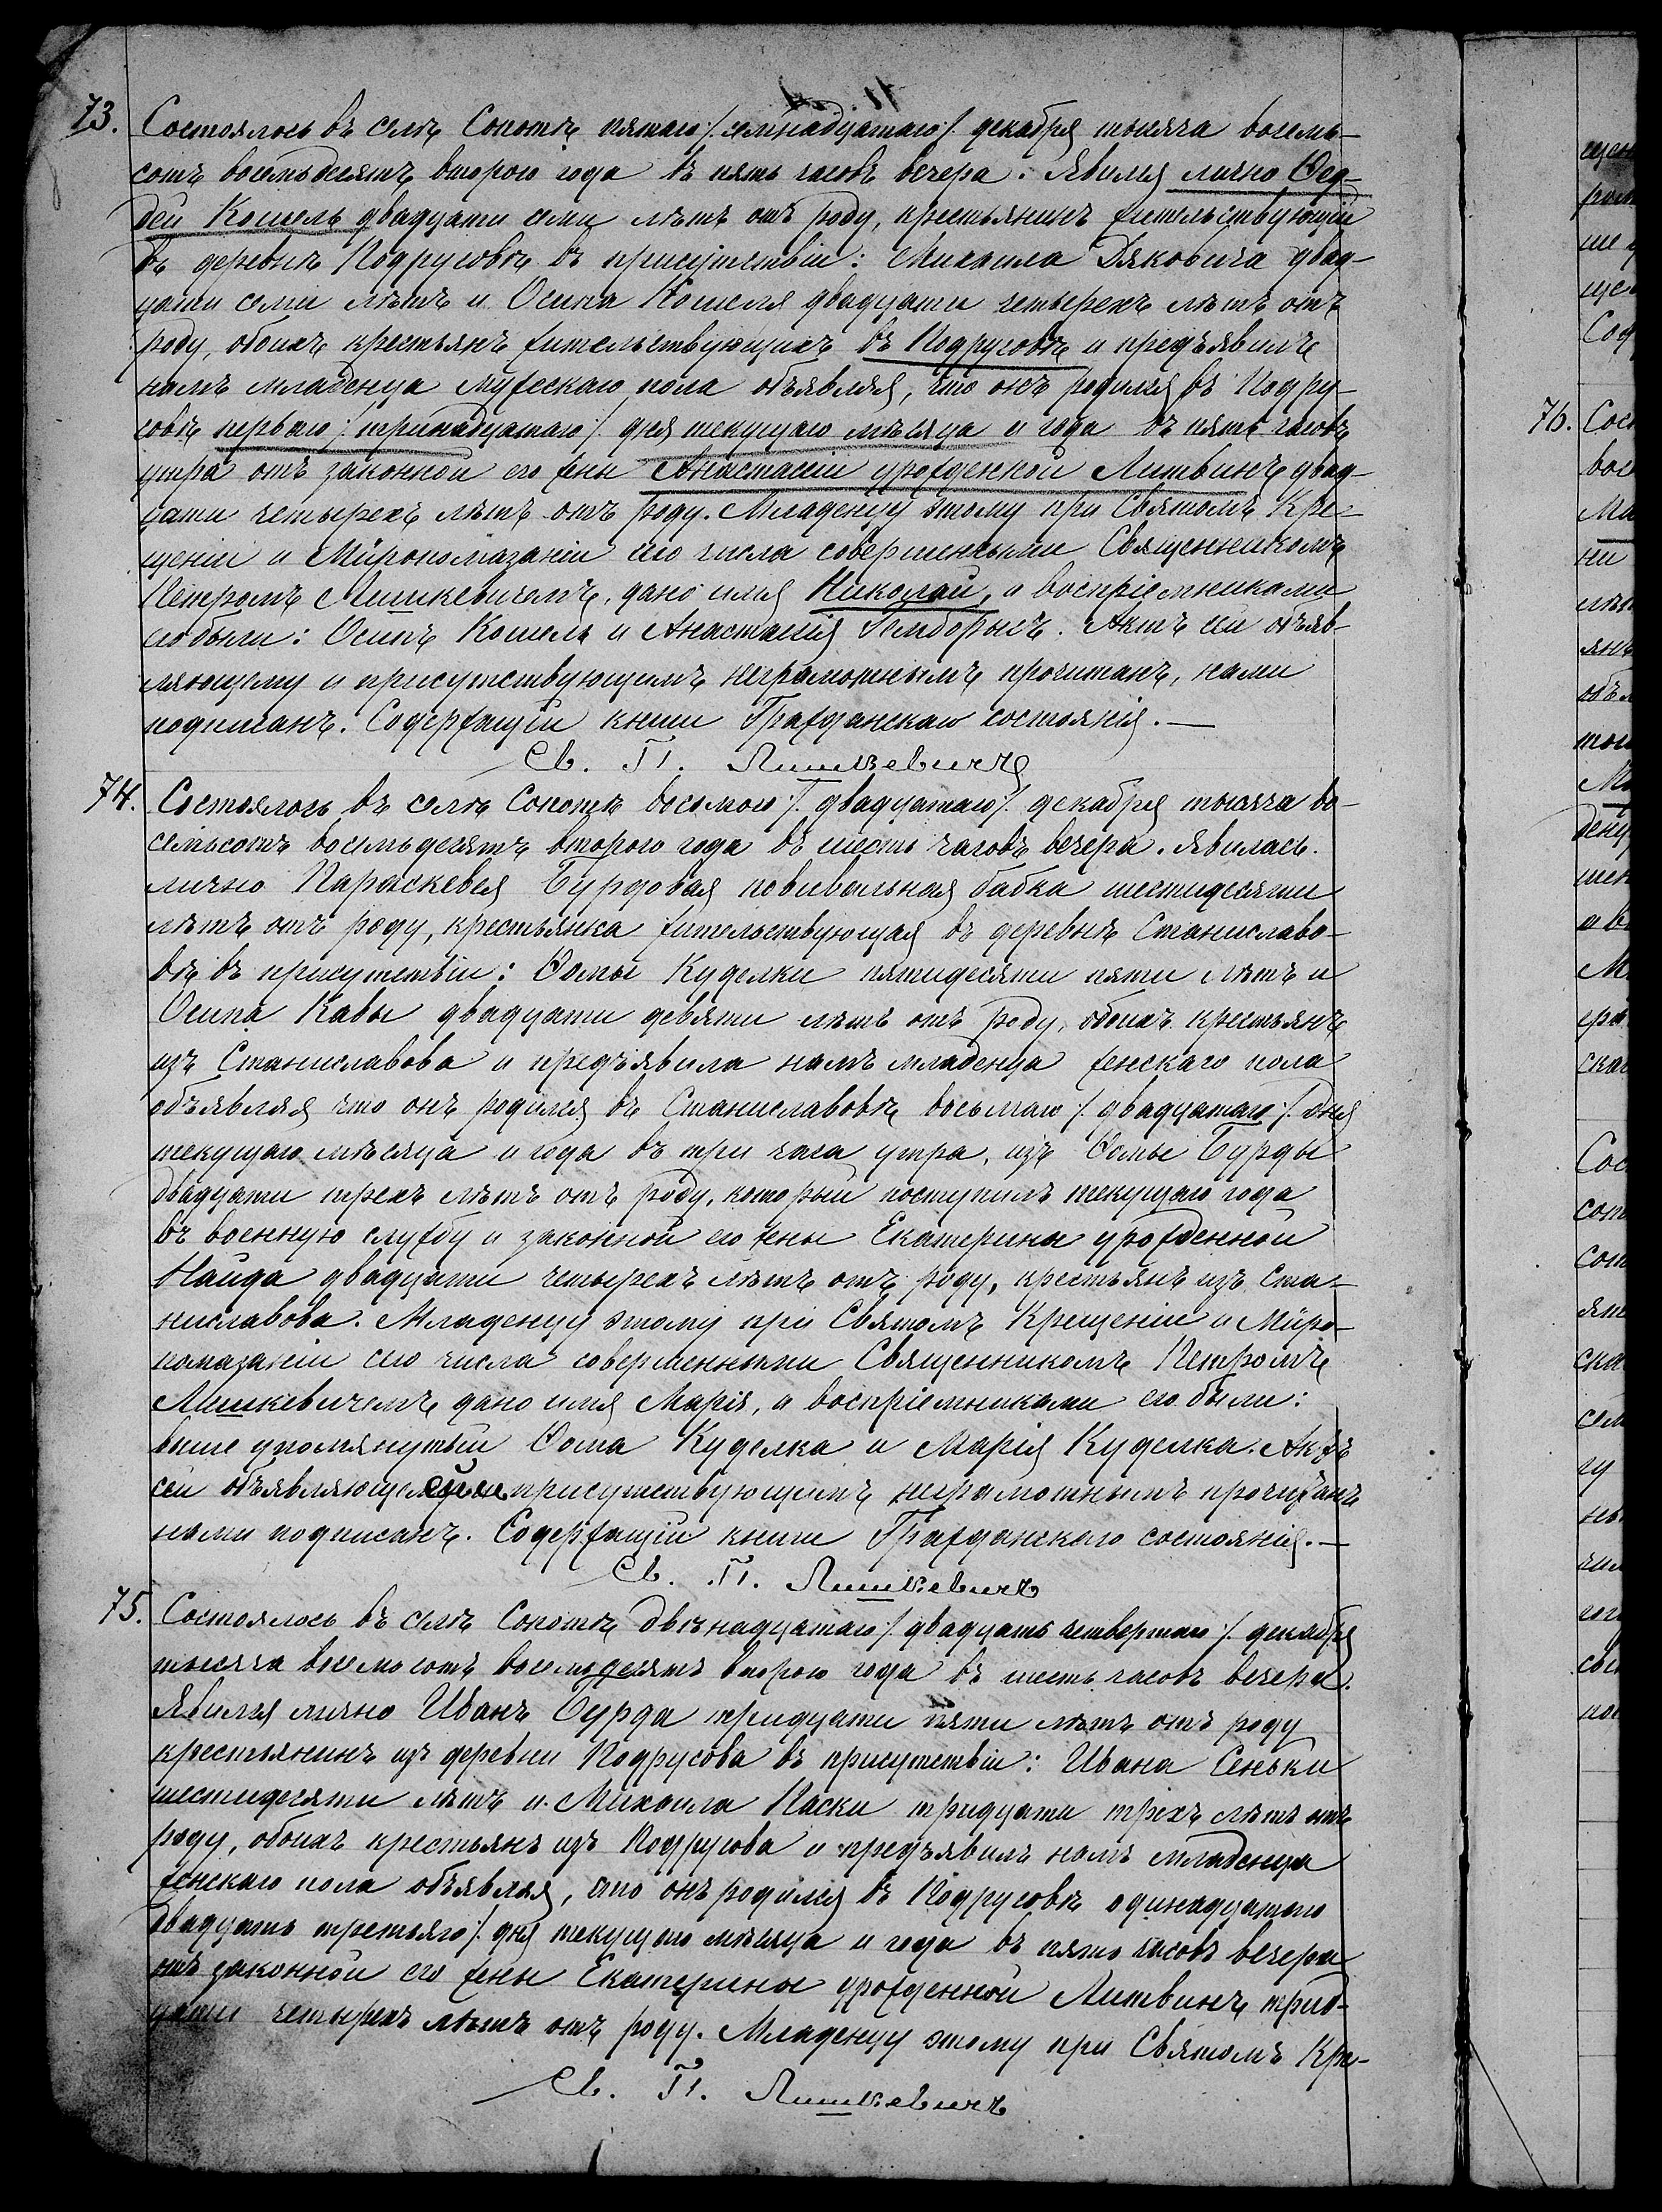 73. Состоялось въ селѣ Сопотѣ пятаго /:семнадцатаго:/ декабря тысяча восемь-
сотъ восемьдесятъ второго года въ пять часовъ вечера. Явился лично Ѳад-
дей Кошель двадцати семи лѣтъ отъ роду, крестьянинъ жительствующій
въ деревнѣ Подрусовѣ въ присутствіи: Михаила Дяковича двад-
цати семи лѣтъ и Осипа Кошеля двадцати четырехъ лѣтъ отъ
роду, обоихъ крестьянъ жительствующихъ въ Подрусовѣ и предъявилъ
намъ младенца мужескаго пола объявляя, что онъ родился въ Подру-
совѣ перваго /:тринадцатаго:/ дня текущаго мѣсяца и года въ пять часовъ
утра отъ законной его жены Анастасіи урожденной Литвинъ двад-
цати четырехъ лѣтъ отъ роду. Младенцу этому при Святомъ Кре-
щеніи и Мѵропомазаніи сего числа совершенными Священникомъ
Петромъ Лишкевичемъ, дано имя Николай, а воспріемниками
его были: Осипъ Кошель и Анастасія Гемборысъ. Актъ сей объяв-
ляющему и присутствующимъ неграмотнымъ прочитанъ, нами
подписанъ. Содержащій книги Гражданскаго состоянія.—
Св. П. Лишкевичъ
74. Состоялось въ селѣ Сопотѣ восьмого /:двадцатаго:/ декабря тысяча во-
семьсотъ восемьдесятъ второго года въ шесть часовъ вечера. Явилась
лично Параскевея Бурдовая повивальная бабка шестидесяти
лѣтъ отъ роду, крестьянка жительствующая въ деревнѣ Станиславо-
вѣ въ присутствіи: Ѳомы Куделки пятидесяти пяти лѣтъ и
Осипа Кавы двадцати девяти лѣтъ отъ роду, обоихъ крестьянъ
изъ Станиславова и предъявила намъ младенца женскаго пола
объявляя что онъ родился въ Станиславовѣ восьмаго /:двадцатаго:/ дня
текущаго мѣсяца и года въ три часа утра, изъ Ѳомы Бурды
двадцати трехъ лѣтъ отъ роду, который поступилъ текущаго года
въ военную службу и законной его жены Екатерины урожденной
Найда двадцати четырехъ лѣтъ отъ роду, крестьянъ изъ Ста-
ниславова. Младенцу этому при Святомъ Крещеніи и Мѵро-
помазаніи сего числа совершенными Священникомъ Петромъ
Лишкевичемъ дано имя Марія, а воспріемниками его были:
выше упомянутый Ѳома Куделка и Марія Куделка. Актъ
сей объявляющей и присутствующимъ неграмотнымъ прочитанъ
нами подписанъ. Содержащій книги Гражданскаго состоянія.—
Св. П. Лишкевичъ
75. Состоялось въ селѣ Сопотѣ двѣнадцатаго /:двадцать четвертаго:/ декабря
тысяча восемьсотъ восемьдесятъ второго года въ шесть часовъ вечера.
Явился лично Иванъ Бурда тридцати пяти лѣтъ отъ роду
крестьянинъ изъ деревни Подрусова въ присутствіи: Ивана Сеньки
шестидесяти лѣтъ и Михаила Паски тридцати трехъ лѣтъ отъ
роду, обоихъ крестьянъ изъ Подрусова и предъявилъ намъ младенца
женскаго пола объявляя, что онъ родился въ Подрусовѣ одинадцатаго
двадцать третьяго:/ дня текущаго мѣсяца и года въ пять часовъ вечера
отъ законной его жены Екатерины урожденной Литвинъ трид-
цати четырехъ лѣтъ отъ роду. Младенцу этому при Святомъ Кре-
Св. П. Лишкевичъ
76.